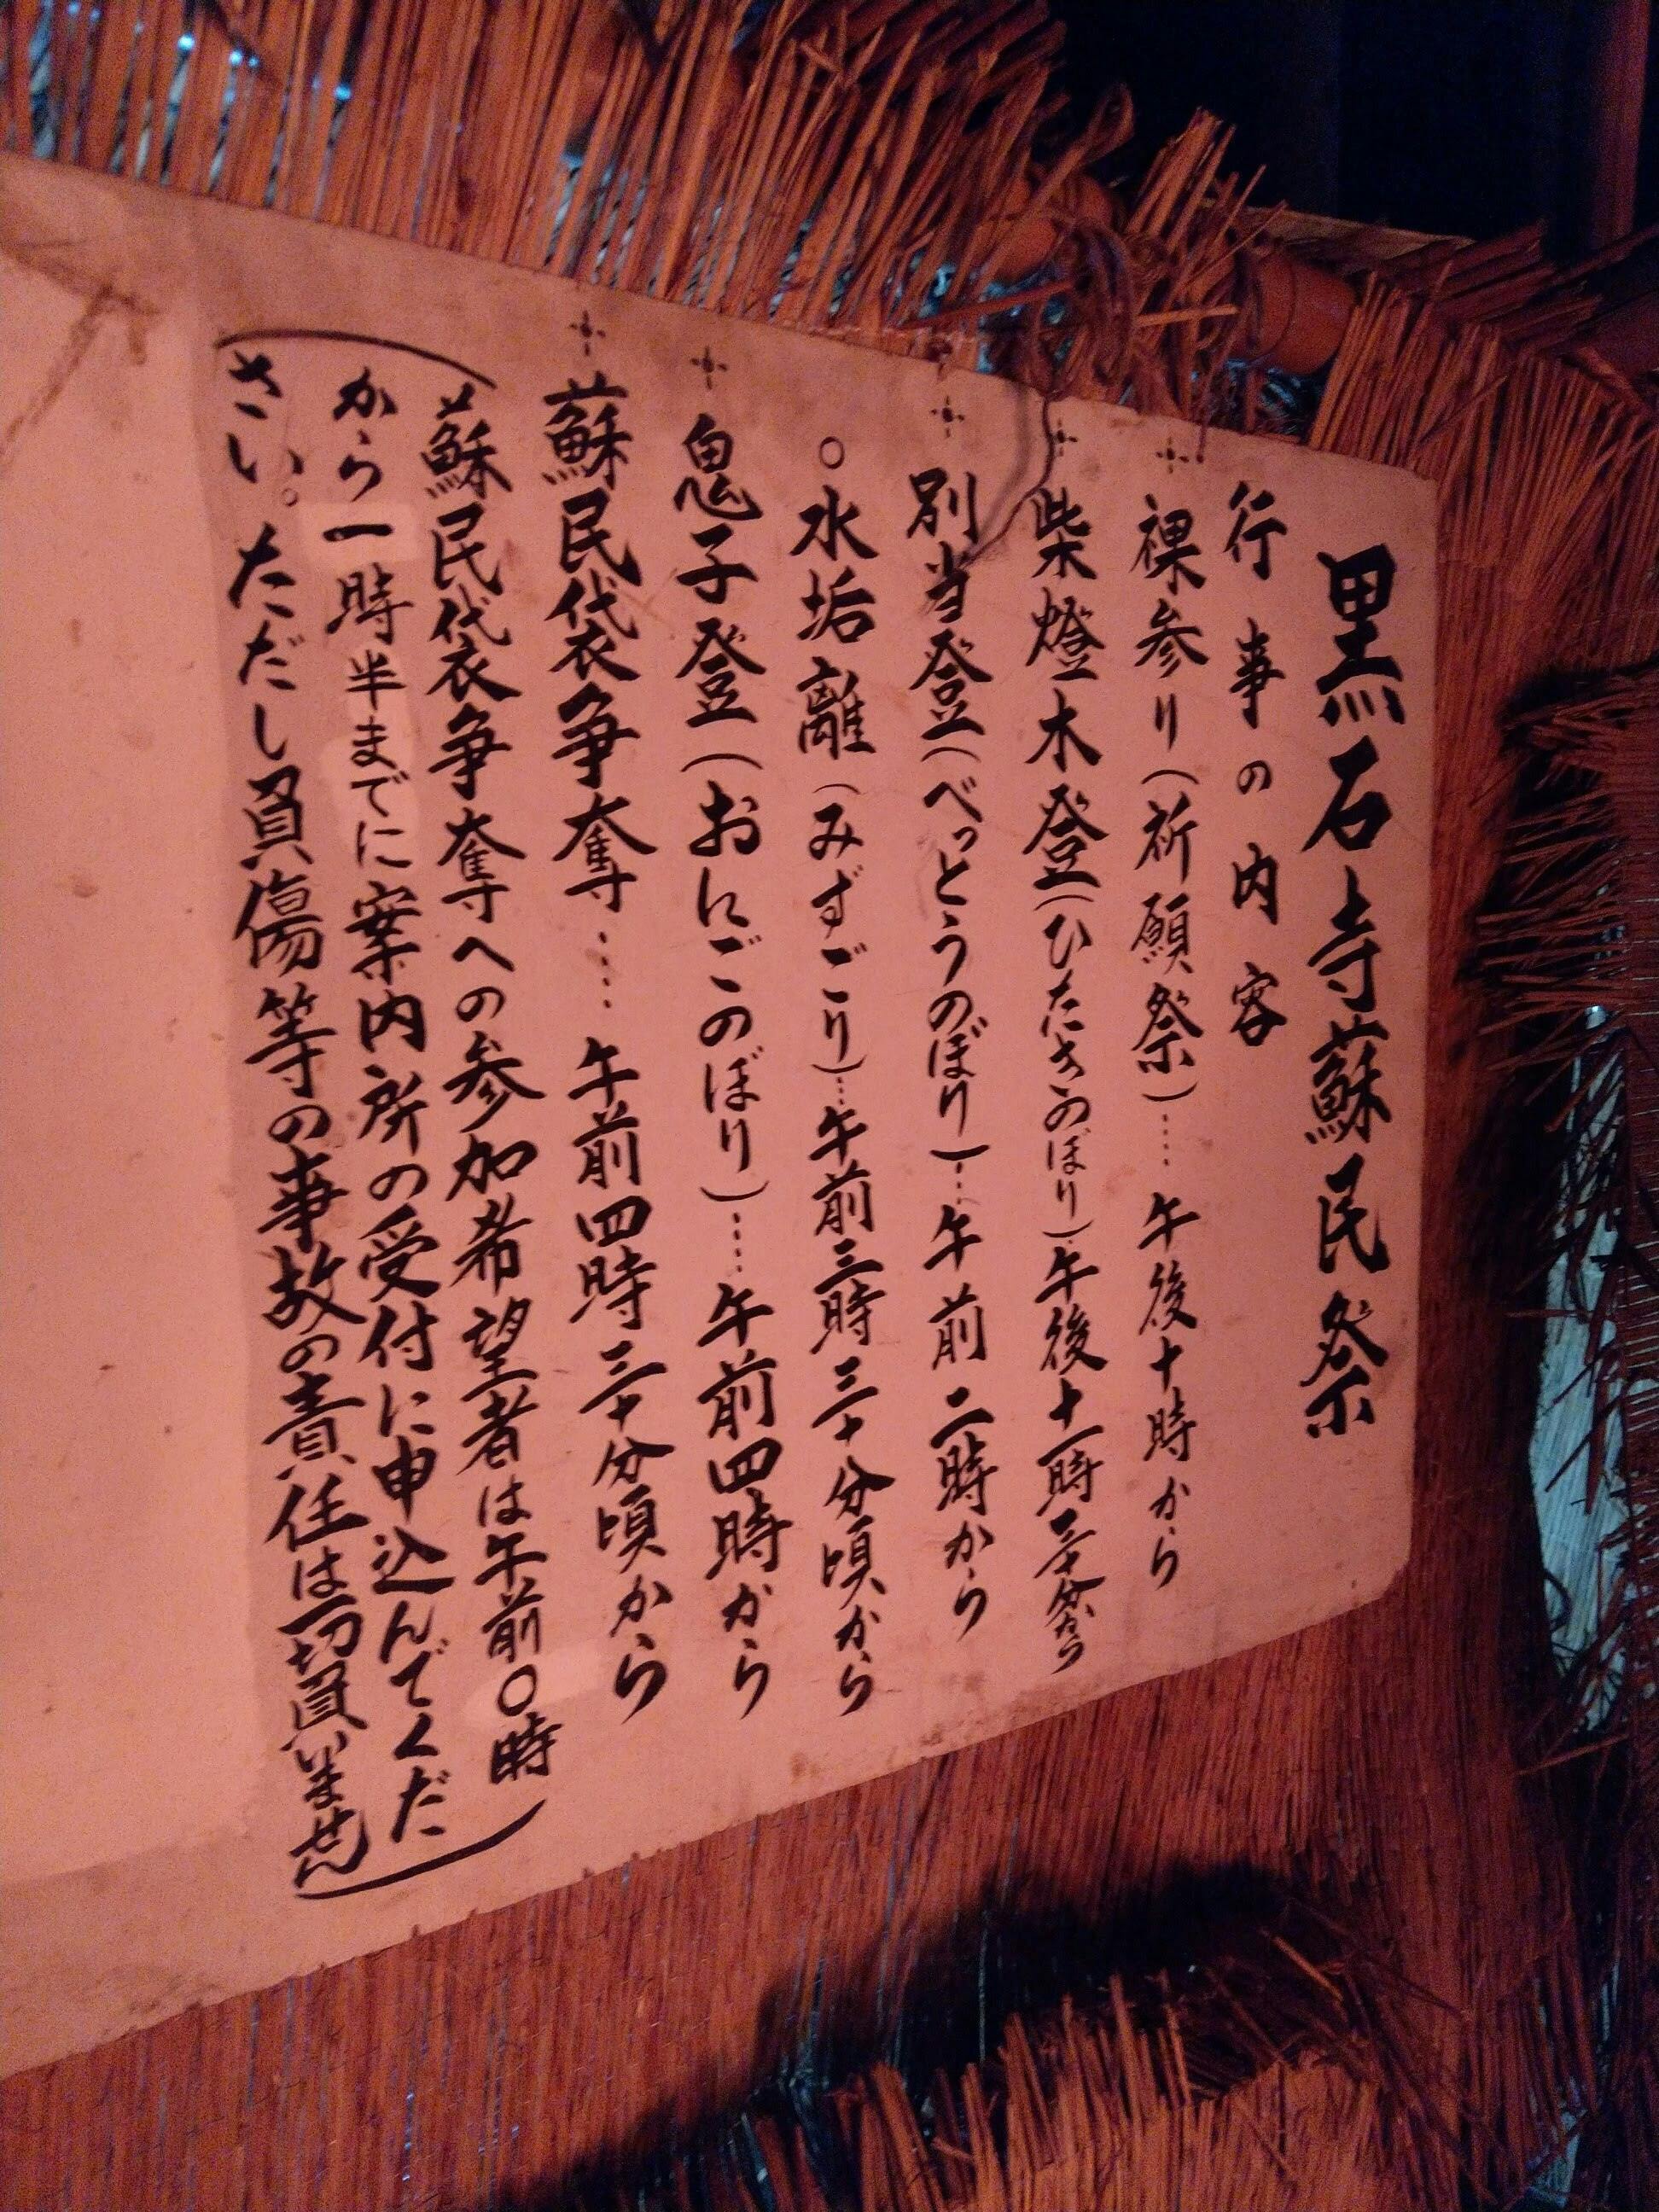 黒石寺蘇民祭
行事の内容
裸参り(祈願祭)……午後十時から
柴燈木登(ひたきのぼり)午後十一時三十分から
別当登(べっとうのぼり)…午前二時から
○水垢離(みずごり)…午前三時三十分頃から
鬼子登(おにごのぼり)……午前四時から
蘇民袋争奪……午前四時三十分頃から
(蘇民袋争奪への参加希望者は午前〇時
から一時半までに案内所の受付に申込んでくだ
さい。ただし負傷等の事故の責任は一切負いません)